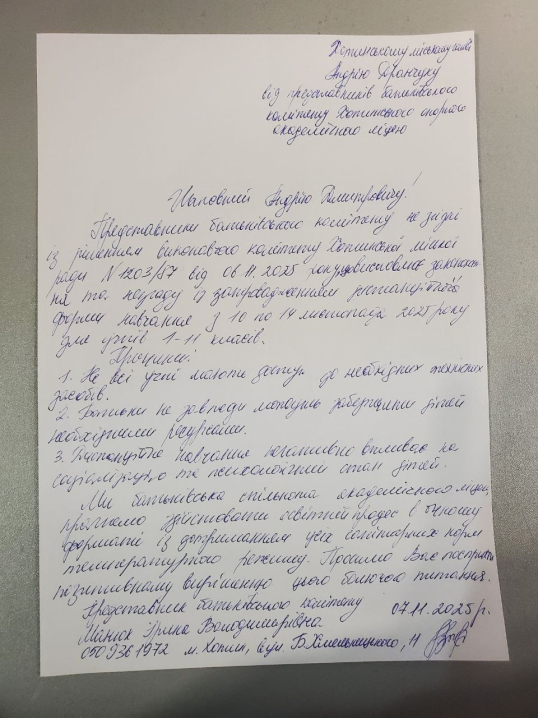 Хотинському міському голові
Андрію Дранчуку
від представників батьківського
комітету Хотинського опорного
академічного ліцею
Шановний Андрію Дмитровичу!
Представники батьківського комітету не згідні
із рішенням виконавчого комітету Хотинської міської
ради N 1203/87 від 06.11.2025 року
на та незгоду із запровадженням дистанційної
форми навчання з 10 по 14 листопада 2025 року
для учнів 1-11 класів.
Причини:
1. Не всі учні мають доступ до необхідних технічних
засобів.
2. Батьки не завжди можуть забезпечити дітей
необхідними ресурсами.
3. Дистанційне навчання негативно впливає на
соціалізацію та психологічний стан дітей.
Ми батьківська спільнота академічного ліцею,
прагнемо здійснювати освітній процес в очному
форматі із дотриманням усіх санітарних норм
температурного режиму. Просимо Вас посприяти
позитивному вирішенню цього болючого питання.
Представник батьківського комітету 07.11.2025 р.
Ірина Володимирівна
0509361972 м. Хотин, вул. Б. Хмельницького, 11